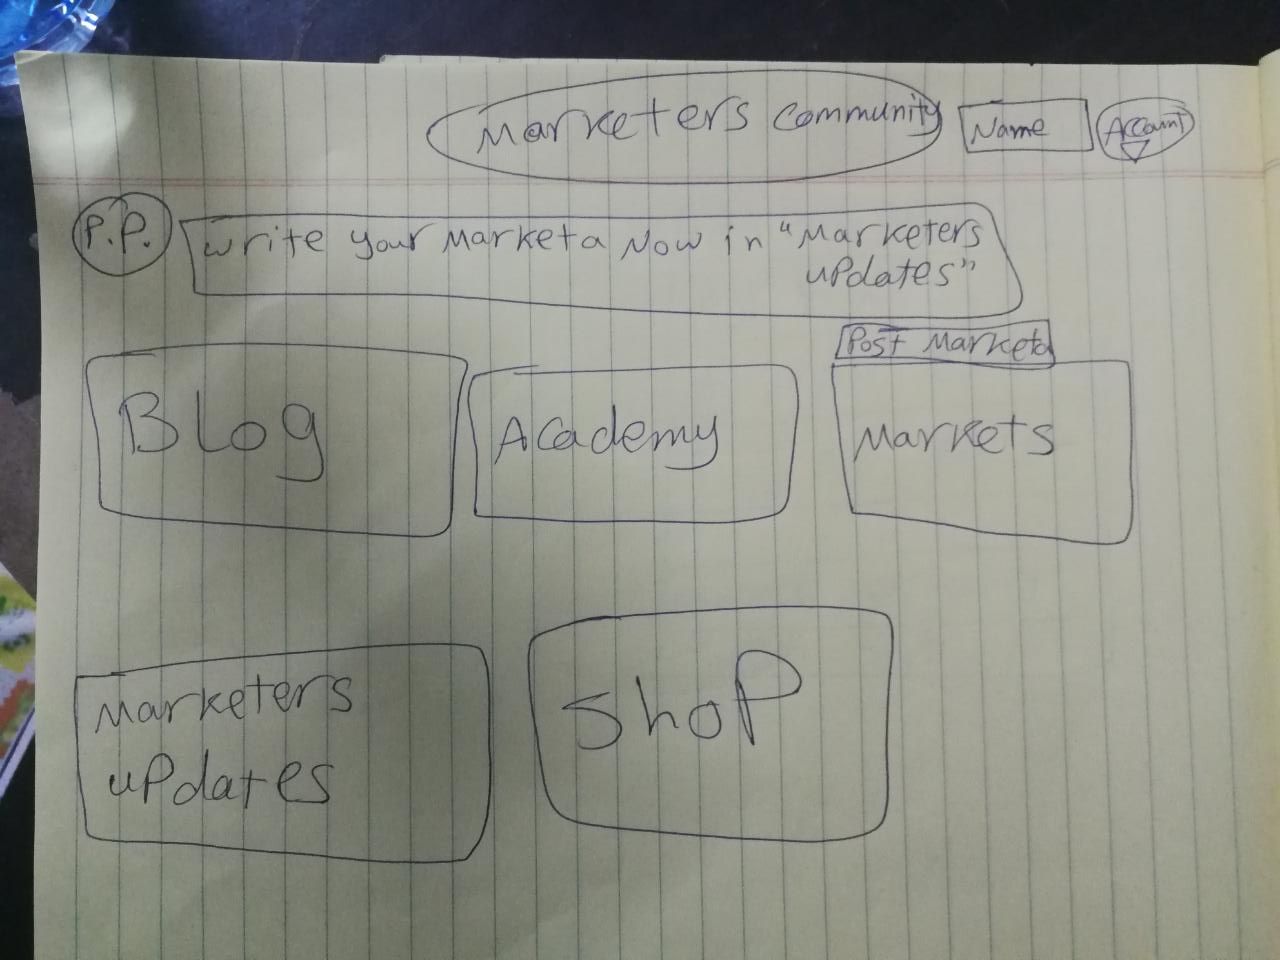 Marketers Community
Name
Account
P.P.
Write your Marketa Now in "Marketers
updates"
Post Marketa
Blog
Academy
Markets
Marketers
updates
Shop